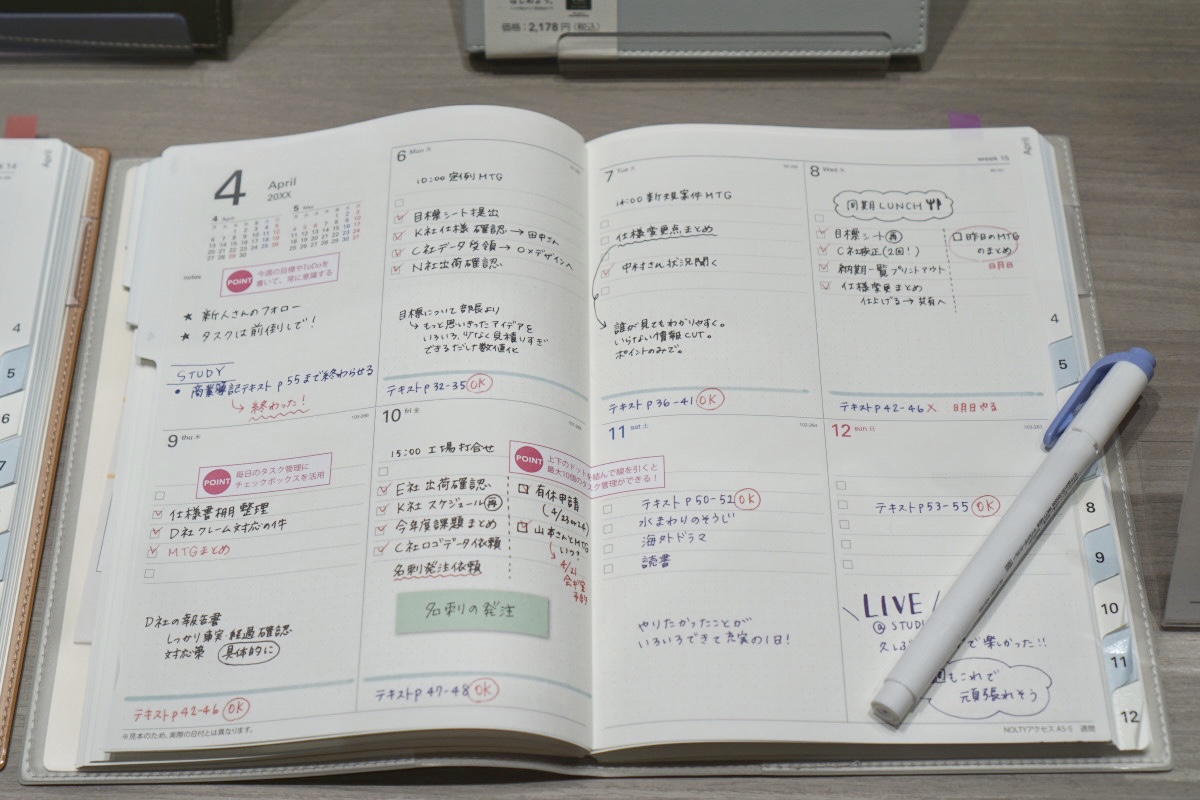 はじめよう。
価格：2,178円（税込）
4
April
20XX
notes
POINT
今週の目標やToDoを
書いて、常に意識する
★ 新人さんのフォロー
★ タスクは前倒しで！
STUDY
• 商業簿記テキスト p55まで終わらせる
↳ 終わった！
6 Mon 月
10:00 定例MTG
目標シート提出
K社仕様確認→田中さん
C社データ受領→○×デザインへ
N社出荷確認
目標について部長より
↳ もっと思いきったアイデアを
いろいろ、少なく見積りすぎ
できるだけ数値化
テキストp32-35 OK
7 Tue 火
14:00 新規案件MTG
仕様変更点まとめ
中村さん状況聞く
誰が見てもわかりやすく。
いらない情報CUT。
ポイントのみで。
テキストp36-41 OK
week 15
April
8 Wed 水
同期LUNCH
目標シート再
C社校正(2回！)
納期一覧プリントアウト
仕様変更まとめ
仕上げる→共有へ
昨日のMTG
のまとめ
日月日
テキストp42-46 × 日月日やる
9 thu 木
POINT
毎日のタスク管理に
チェックボックスを活用
仕様書棚整理
D社クレーム対応の件
MTGまとめ
D社の報告書
しっかり事実・経過確認
対応策 具体的に
テキストp42-46 OK
※見本のため、実際の日付とは異なります。
10 fri 金
15:00 工場打合せ
POINT
上下のドットを結んで線を引くと
最大10個のタスク管理ができる！
E社出荷確認
K社スケジュール再
今年度課題まとめ
C社ロゴデータ依頼
名刺発注依頼
有休申請
(4/23or24)
山本さんとMTG
↳ いつ？
4/21
会議室
予約
名刺の発注
テキストp47-48 OK
11 sat 土
テキストp50-52 OK
水まわりのそうじ
海外ドラマ
読書
やりたかったことが
いろいろできて充実の1日！
12 sun 日
テキストp53-55 OK
LIVE
@STUD
久しぶ で楽しかった!!
もこれで
頑張れそう
NOLTYアクセス A5-5 週間
4
5
8
9
10
11
12
4
5
6
7